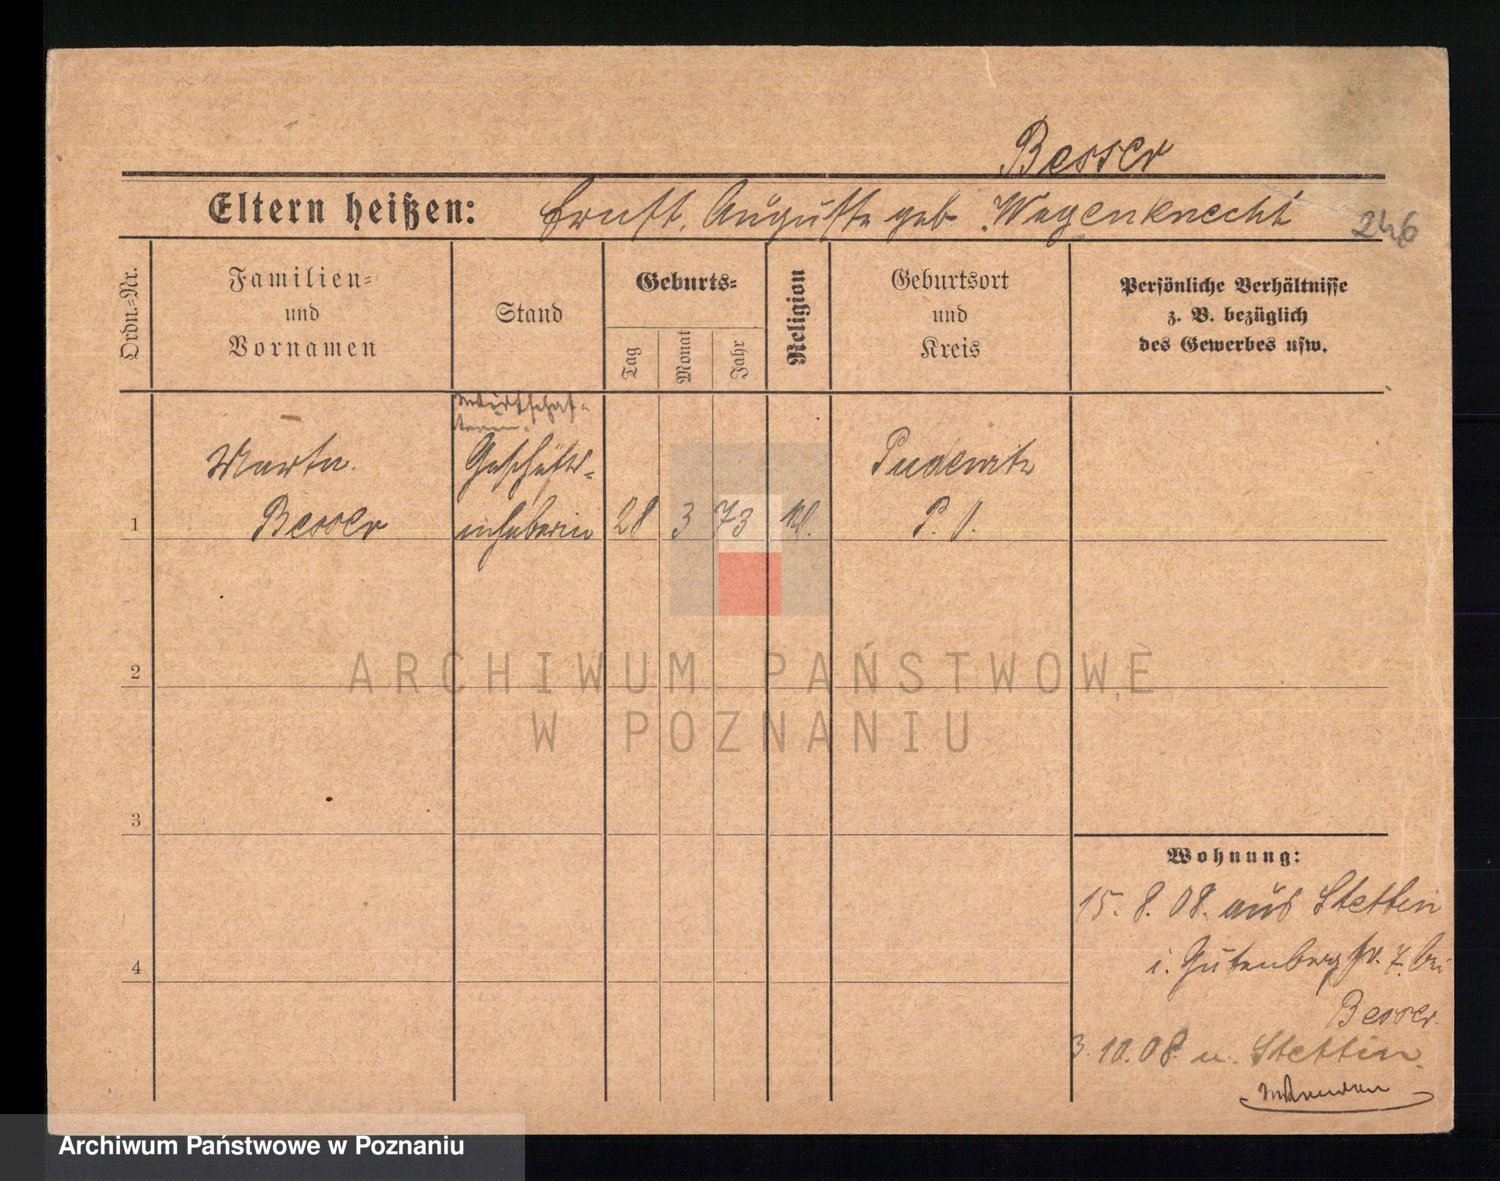 Besser
Eltern heißen: Ernst, Auguste geb. Wegenknecht
246
Ordn.-Nr.
Familien-
und
Vornamen
Stand
Geburts-
Tag
Monat
Jahr
Religion
Geburtsort
und
Kreis
Persönliche Verhältnisse
z. B. bezüglich
des Gewerbes usw.
Wirtschaf-
terin.
Marta
Besser
Geschäfts-
inhaberin
1
28
3
73
Pudewitz
P. O.
2
3
4
ARCHIWUM PAŃSTWOWE
W POZNANIU
Wohnung:
15. 8. 08. aus Stettin
i. Gutenbergstr. 7. bei
Besser.
3. 10. 08. n. Stettin.
Archiwum Państwowe w Poznaniu